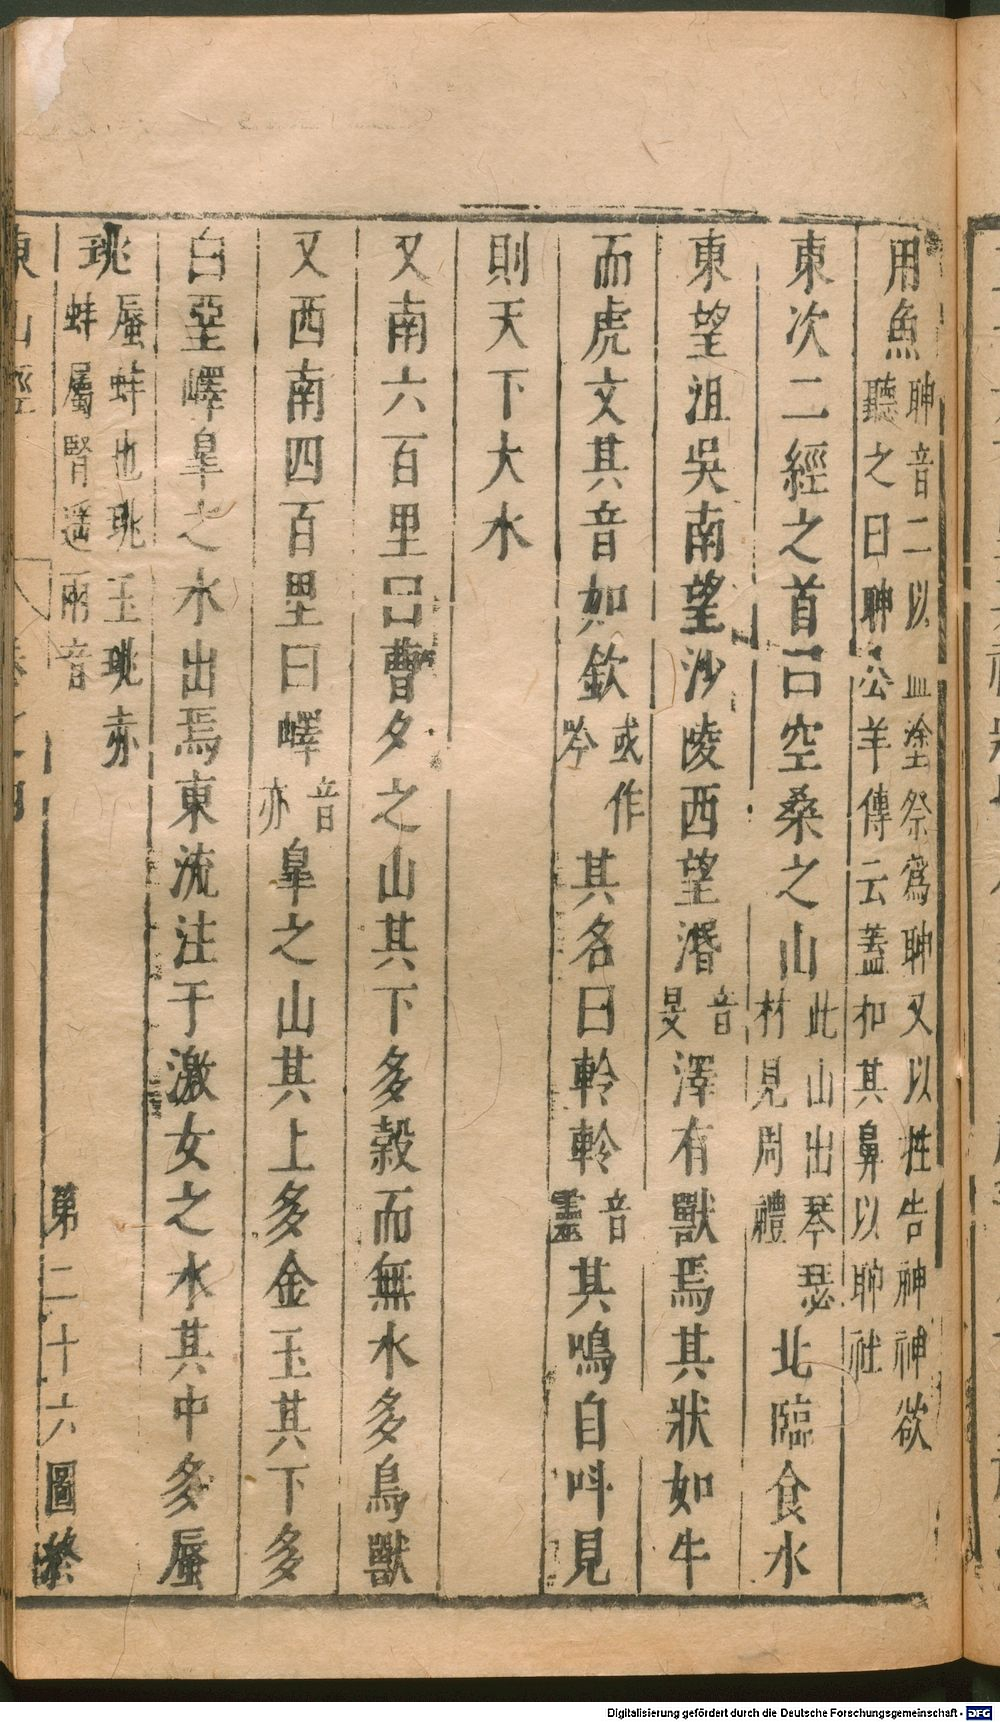 用魚聃音二以血塗祭爲聃又以牲告神神欲聽之曰聃公羊傳云蓋扣其鼻以聃社
東次二經之首曰空桑之山此山出琴瑟材見周禮北臨食水
東望沮吳南望沙陵西望湣音旻澤有獸焉其狀如牛
而虎文其音如欽或作吟其名曰軨軨音靈其鳴自叫見
則天下大水
又南六百里曰曹夕之山其下多榖而無水多鳥獸
又西南四百里曰嶧音亦皐之山其上多金玉其下多
白堊嶧皐之水出焉東流注于激女之水其中多蜃
珧蜃蚌也珧玉珧亦蚌屬腎遥兩音
東山經 卷之四 第二十六圖終
Digitalisierung gefördert durch die Deutsche Forschungsgemeinschaft - DFG